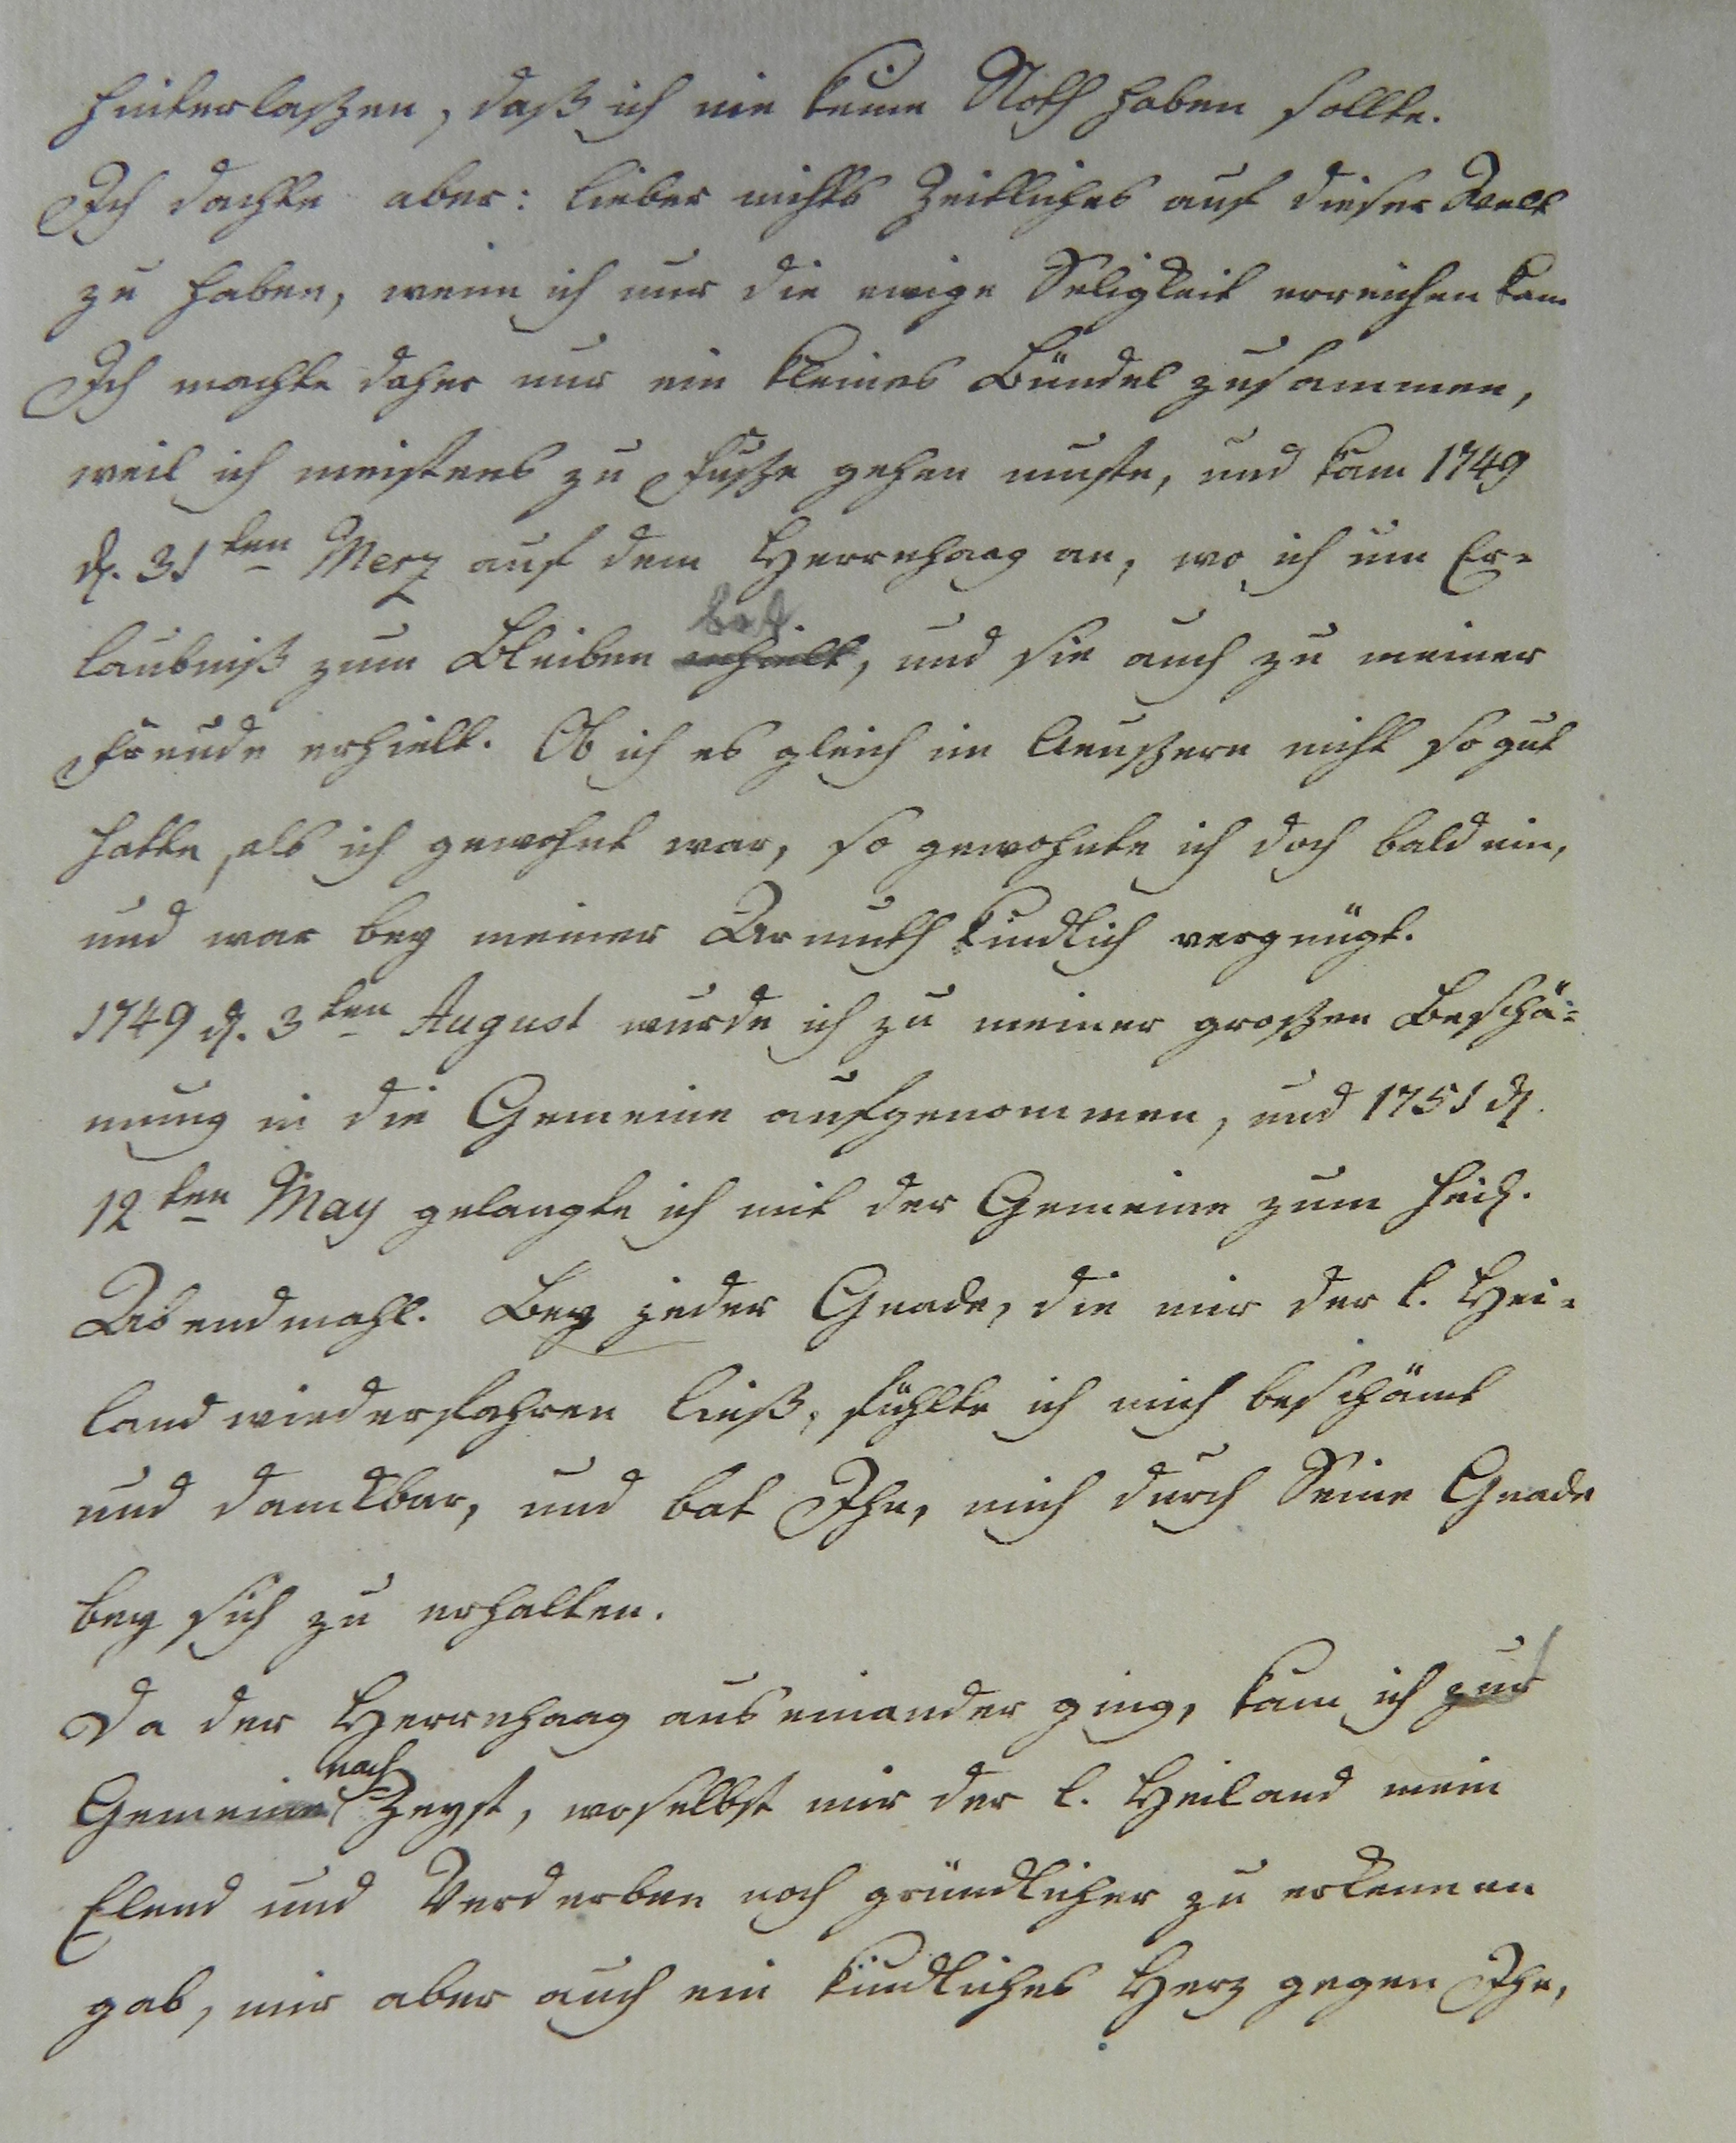 hinterlaßen, daß ich nie keine Noth haben sollte.
Ich dachte aber: lieber nichts Zeitliches auf dieser Welt
zu haben, wenn ich nur die ewige Seligkeit erreichen kan
Ich machte daher nur ein kleines Bündel zusammen,
weil ich meistens zu Fuße gehen muste, und kam 1749
d. 31ten Merz auf dem Herrnhaag an, wo ich um Er-
laubniß zum Bleiben bat erhielt, und sie auch zu meiner
Freude erhielt. Ob ich es gleich im Aeußern nicht so gut
hatte, als ich gewohnt war, so gewohnte ich doch bald ein,
und war bey meiner Armuth kindlich vergnügt.
1749 d. 3ten August wurde ich zu meiner großen Beschä-
mung in die Gemeine aufgenommen, und 1751 d.
12ten May gelangte ich mit der Gemeine zum heil.
Abendmahl. Bey jeder Gnade, die mir der l. Hei-
land wiederfahren ließ, fühlte ich mich beschämt
und dankbar, und bat Ihn, mich durch Seine Gnade
bey sich zu erhalten.
Da der Herrnhaag auseinander ging, kam ich zur
Gemeine nach Zeyst, woselbst mir der l. Heiland mein
Elend und Verderben noch gründlicher zu erkennen
gab, mir aber auch ein kindliches Herz gegen Ihn,